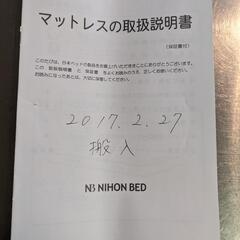 マットレスの取扱説明書
（保証書付）
このたびは、日本ベッドの製品をお買上げいただきまことにありがとうございます。
この 取扱説明書 と 保証書 をよくお読みのうえ、正しくお使いください。
お読みになったあとは、大切に保管してください。
2017.2.27
搬入
NB NIHON BED